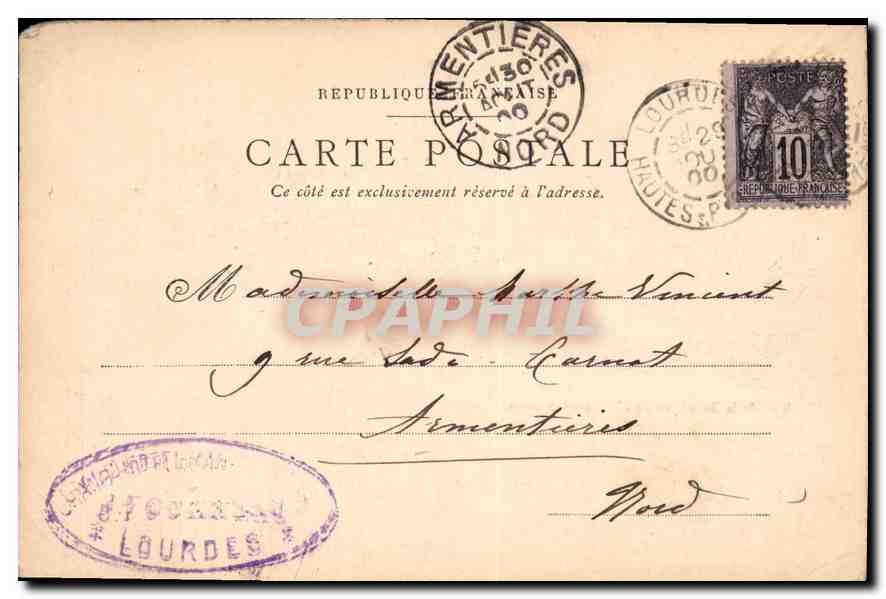 ARMENTIERES
30
AOUT
00
NORD
LOURDES
28
00
HAUTES-P
POSTE
10
REPUBLIQUE FRANÇAISE
REPUBLIQUE FRANÇAISE
CARTE POSTALE
Ce côté est exclusivement réservé à l'adresse.
Mademoiselle Marthe Vincent
CPAPHIL
9 rue Sadi-Carnot
Armentières
Nord
LOURDES